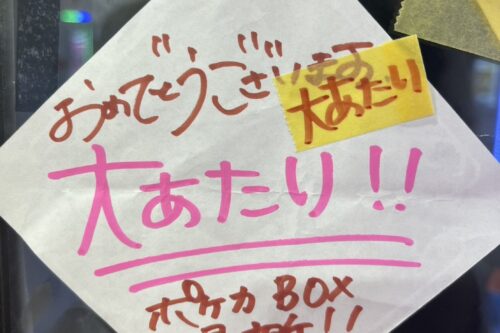 おめでとうございます
大あたり
大あたり!!
ポケカBOX